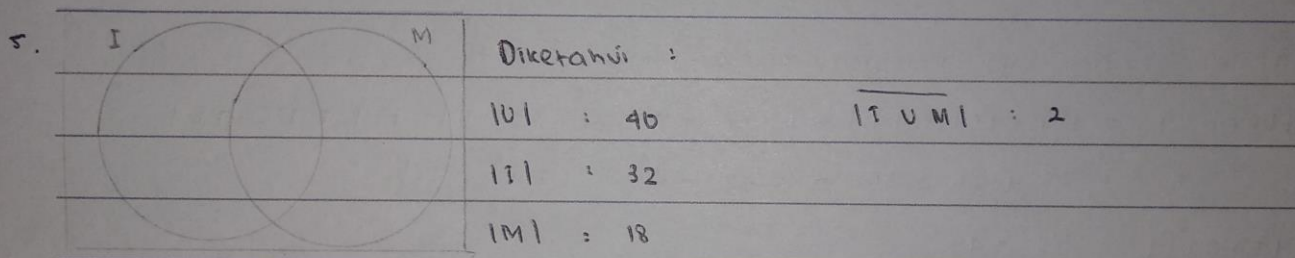 5. I M Diketahui :
|U| : 40 |I ∪ M|‾ : 2
|I| : 32
|M| : 18